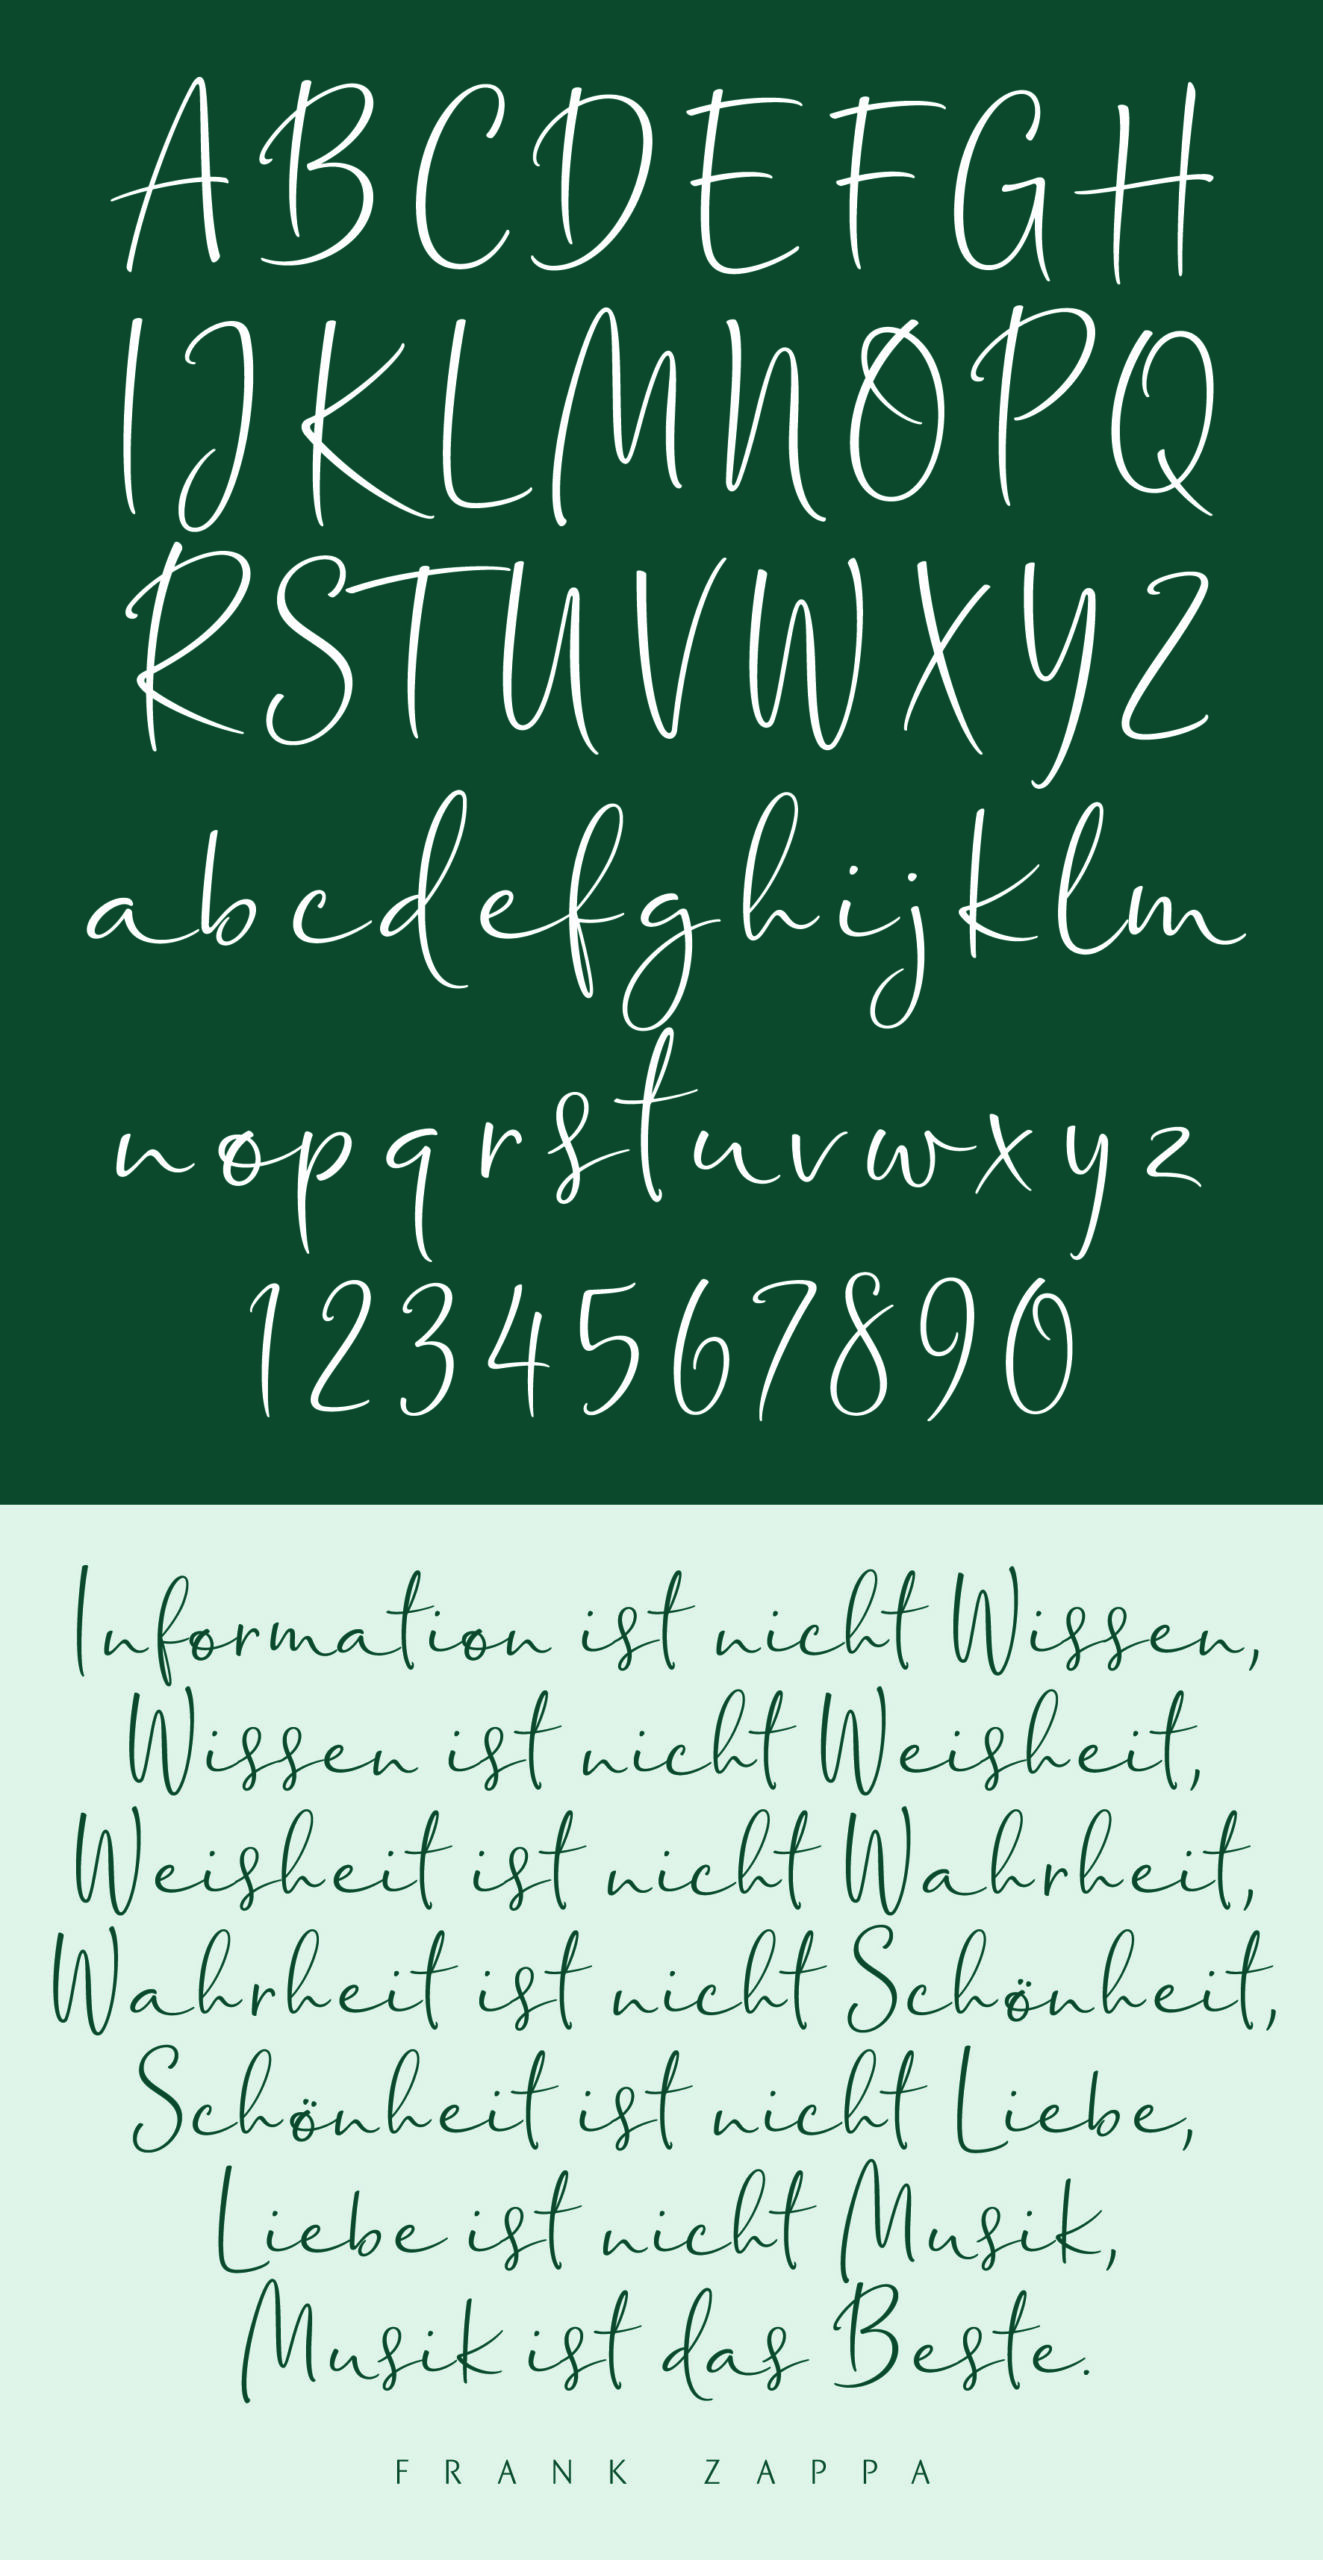 ABCDEFGH
IJKLMNOPQ
RSTUVWXYZ
abcdefghijklm
nopqrstuvwxyz
1234567890
Information ist nicht Wissen,
Wissen ist nicht Weisheit,
Weisheit ist nicht Wahrheit,
Wahrheit ist nicht Schönheit,
Schönheit ist nicht Liebe,
Liebe ist nicht Musik,
Musik ist das Beste.
FRANK ZAPPA